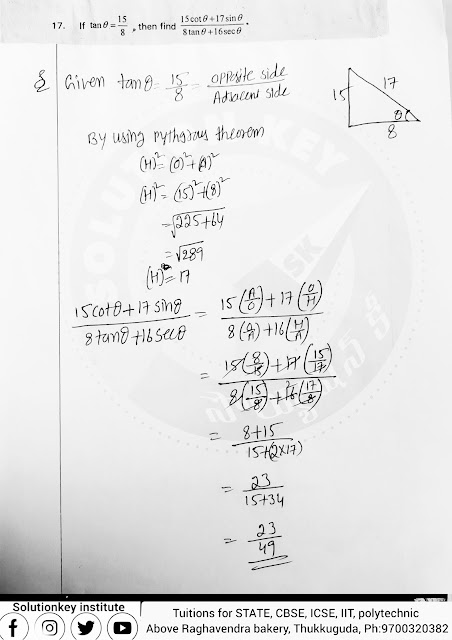 17. If tan θ = 15/8, then find (15 cot θ + 17 sin θ)/(8 tan θ + 16 sec θ).
Given tanθ = 15/8 = opposite side/Adjacent side
15 17
θ
8
By using pythgorus theorem
(H)² = (O)² + (A)²
(H)² = (15)² + (8)²
= √225+64
= √289
(H) = 17
(15cotθ + 17 sinθ)/(8tanθ + 16secθ) = (15(A/O) + 17(O/H))/(8(O/A) + 16(H/A))
= (15(8/15) + 17(15/17))/(8(15/8) + 16(17/8))
= (8+15)/(15+(2×17))
= 23/(15+34)
= 23/49
SOLUTION KEY
SK
Solutionkey institute
Tuitions for STATE, CBSE, ICSE, IIT, polytechnic
Above Raghavendra bakery, Thukkuguda, Ph:9700320382